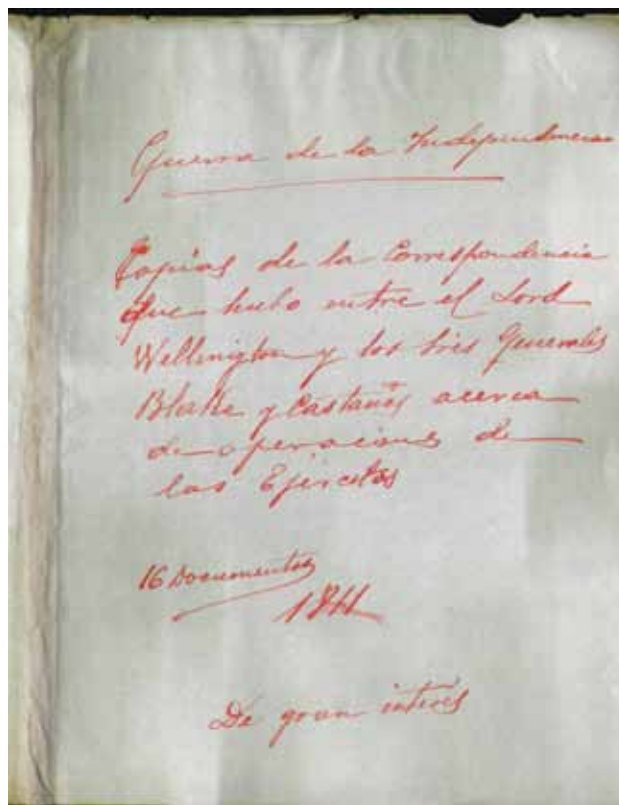 Guerra de la Independencia
Copias de la Correspondencia
que hubo entre el Lord
Wellington y los Sres Generales
Blake y Castaños acerca
de operaciones de
los Ejercitos
16 Documentos
1811
De gran interés